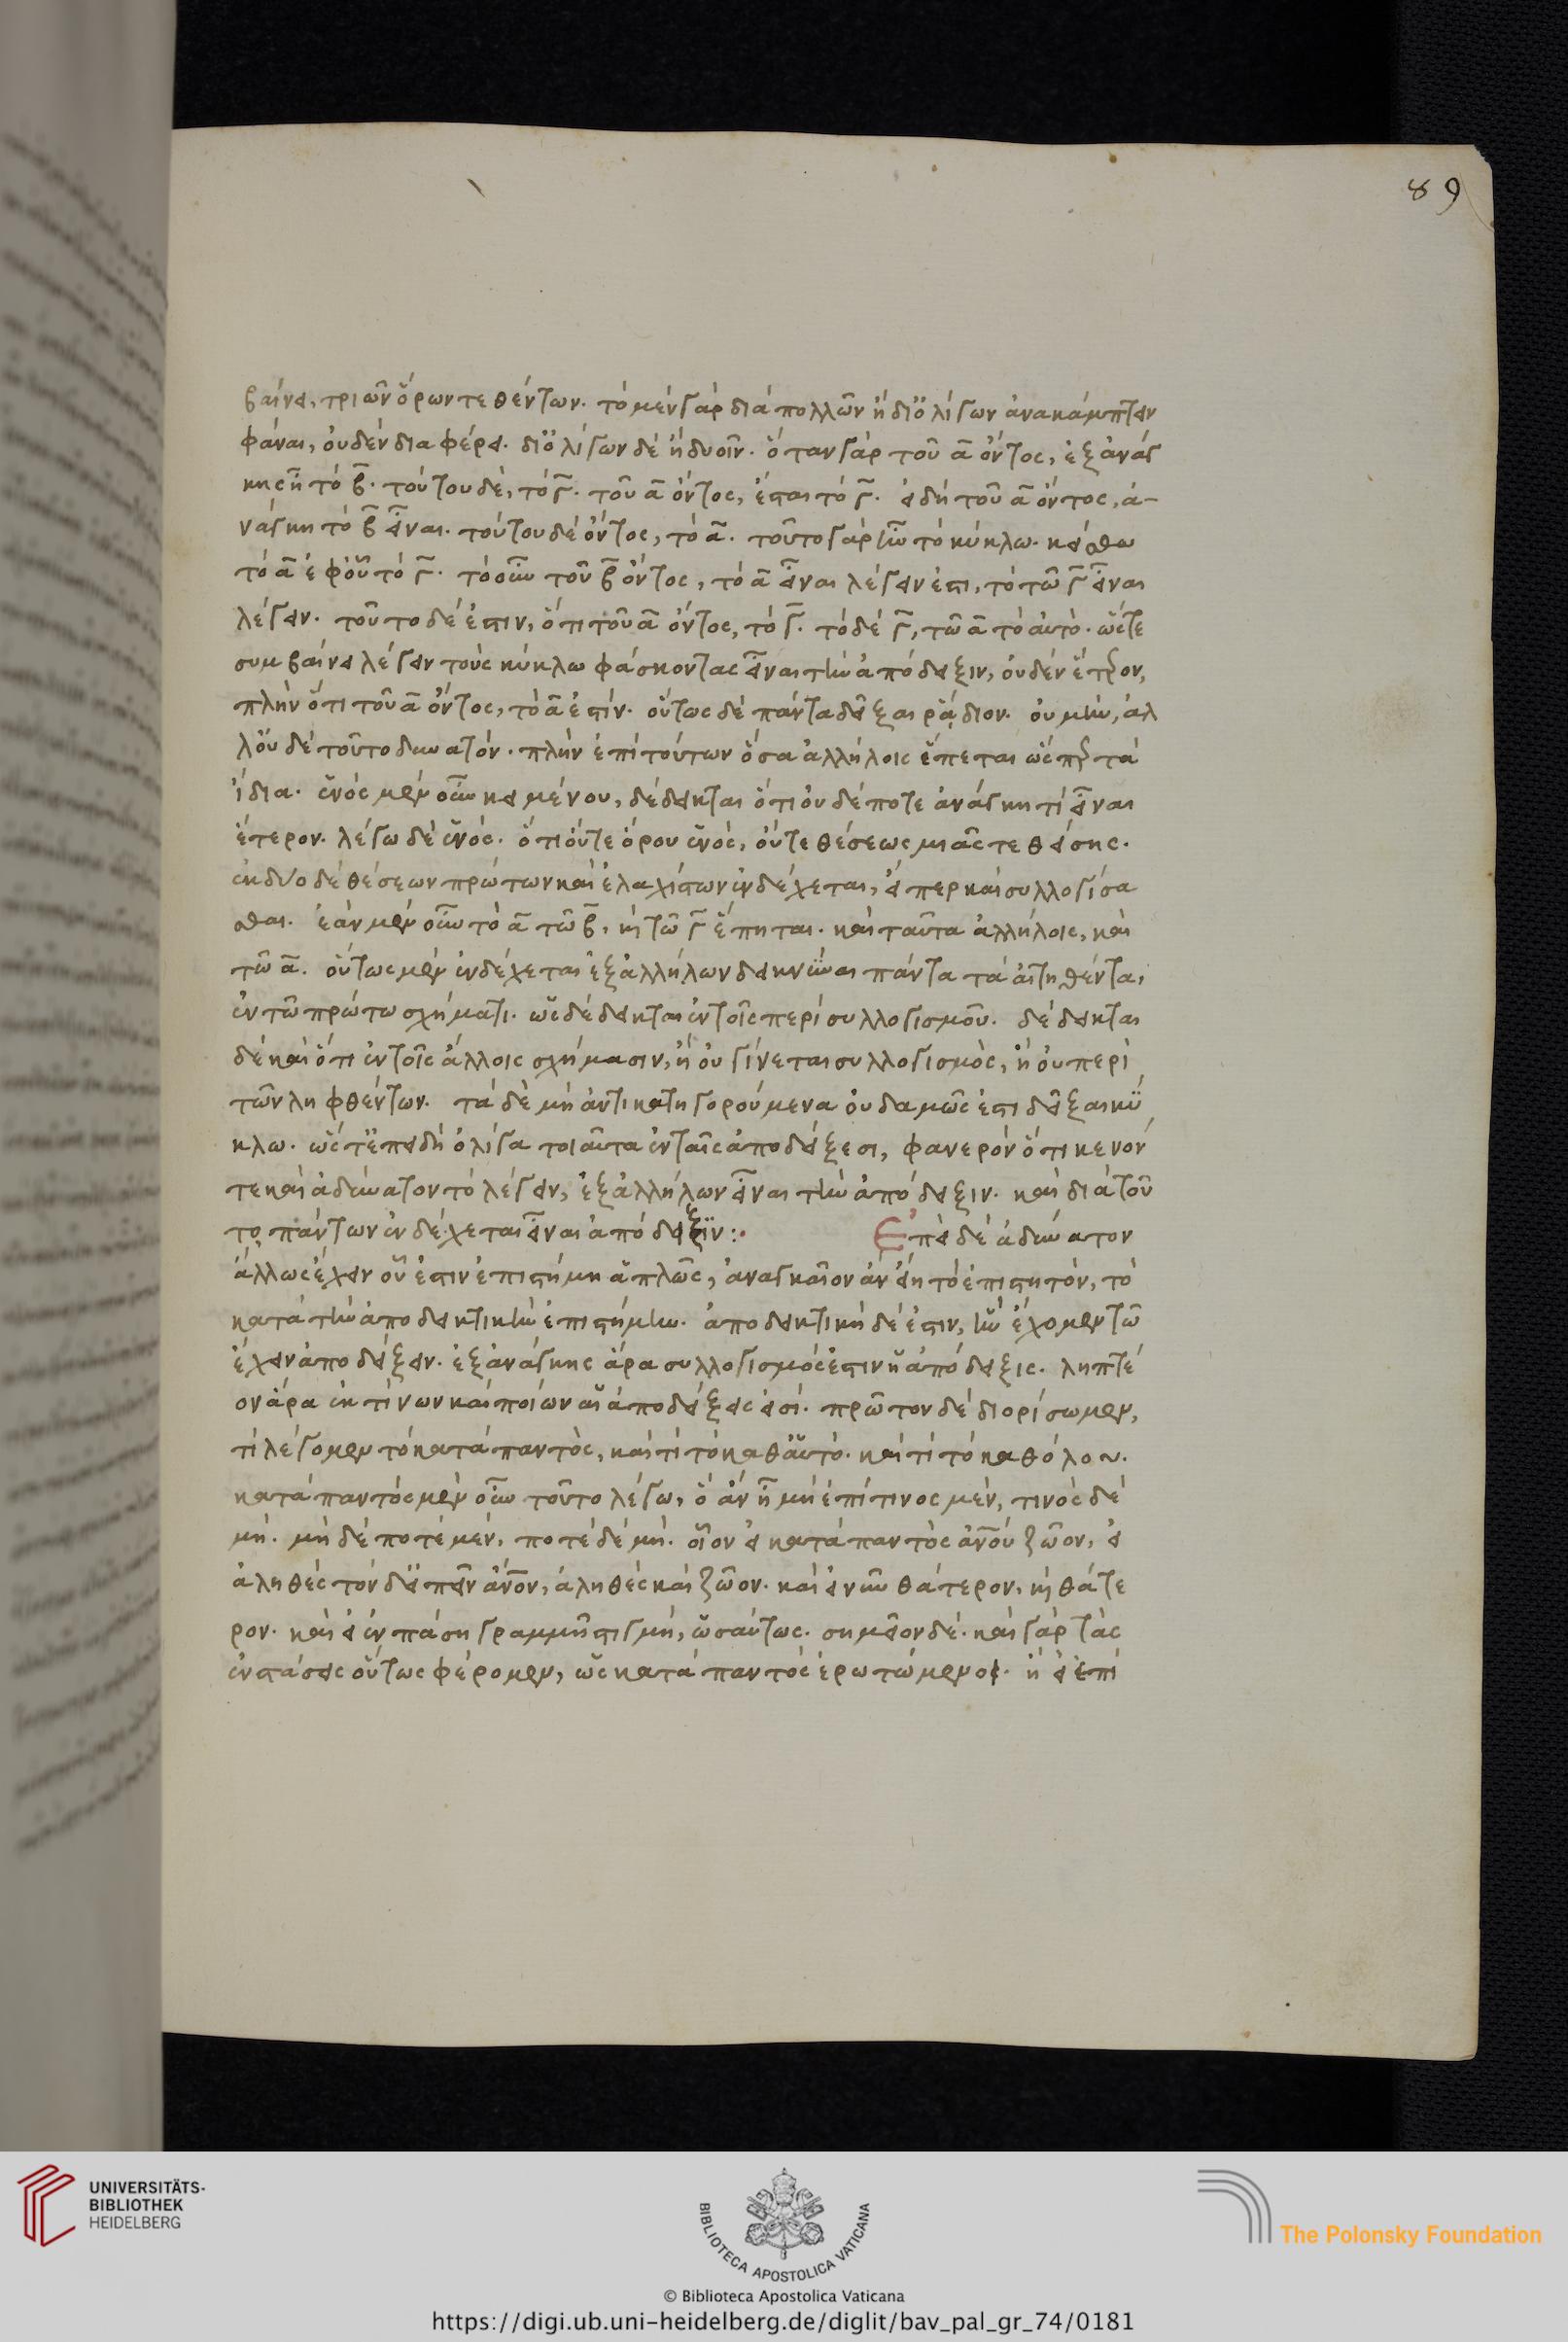 89
βαίνει, τριῶν ὅρων τεθέντων. τὸ μὲν γὰρ διὰ πολλῶν ἢ δι ὀλίγων ἀνακάμπτειν
φάναι, οὐδὲν διαφέρει. δι ὀλίγων δὲ ἢ δυοῖν. ὅταν γὰρ τοῦ α̅ ὄντος, ἐξ ἀνάγ
κης ᾖ τὸ β̅. τούτου δὲ, τὸ γ̅. τοῦ α̅ ὄντος, ἔσται τὸ γ̅. εἰ δὴ τοῦ α̅ ὄντος, ἀ-
νάγκη τὸ β̅ εἶναι. τούτου δὲ ὄντος, τὸ α̅. τοῦτο γὰρ ἦν τὸ κύκλω. κείσθω
τὸ α̅ ἐφ οὗ τὸ γ̅. τὸ οὖν τοῦ β̅ ὄντος, τὸ α̅ εἶναι λέγειν ἐστι, τὸ τῶ γ̅ εἶναι
λέγειν. τοῦτο δέ ἐστιν, ὅτι τοῦ α̅ ὄντος, τὸ γ̅. τὸ δὲ γ̅, τῶ α̅ τὸ αὐτὸ. ὥστε
συμβαίνει λέγειν τοὺς κύκλω φάσκοντας εἶναι τὴν ἀπόδειξιν, οὐδὲν ἕτερον,
πλὴν ὅτι τοῦ α̅ ὄντος, τὸ α̅ ἐστίν. οὕτως δὲ πάντα δεῖξαι ῥάδιον. οὐ μὴν, ἀλ
λ οὐδὲ τοῦτο δυνατόν. πλὴν ἐπὶ τούτων ὅσα ἀλλήλοις ἕπεται ὥσπερ τὰ
ἴδια. ἑνὸς μὲν οὖν κειμένου, δέδεικται ὅτι οὐδέποτε ἀνάγκη τὶ εἶναι
ἕτερον. λέγω δὲ ἑνός. ὅτι οὔτε ὅρου ἑνός, οὔτε θέσεως μιᾶς τεθείσης.
ἐκ δύο δὲ θέσεων πρώτων καὶ ἐλαχίστων ἐνδέχεται, εἴπερ καὶ συλλογίσα
σθαι. ἐὰν μὲν οὖν τὸ α̅ τῶ β̅, καὶ τῶ γ̅ ἕπηται. καὶ ταῦτα ἀλλήλοις, καὶ
τῶ α̅. οὕτως μὲν ἐνδέχεται ἐξ ἀλλήλων δεικνύναι πάντα τὰ αἰτηθέντα,
ἐν τῶ πρώτω σχήματι. ὡς δέδεικται ἐν τοῖς περὶ συλλογισμοῦ. δέδεικται
δὲ καὶ ὅτι ἐν τοῖς ἄλλοις σχήμασιν, ἢ οὐ γίνεται συλλογισμὸς, ἢ οὐ περὶ
τῶν ληφθέντων. τὰ δὲ μὴ ἀντικατηγορούμενα οὐδαμῶς ἐστι δεῖξαι κύ
κλω. ὥστ ἐπειδὴ ὀλίγα τοιαῦτα ἐν ταῖς ἀποδείξεσι, φανερὸν ὅτι κενόν
τε καὶ ἀδύνατον τὸ λέγειν, ἐξ ἀλλήλων εἶναι τὴν ἀπόδειξιν. καὶ διὰ τοῦ
το πάντων ἐνδέχεται εἶναι ἀπόδειξιν :. Ἐπεὶ δὲ ἀδύνατον
ἄλλως ἔχειν οὗ ἐστιν ἐπιστήμη ἁπλῶς, ἀναγκαῖον ἂν εἴη τὸ ἐπιστητὸν, τὸ
κατὰ τὴν ἀποδεικτικὴν ἐπιστήμην. ἀποδεικτικὴ δέ ἐστιν, ἣν ἔχομεν τῶ
ἔχειν ἀπόδειξιν. ἐξ ἀνάγκης ἄρα συλλογισμός ἐστιν ἡ ἀπόδειξις. ληπτέ
ον ἄρα ἐκ τίνων καὶ ποίων αἱ ἀποδείξεις εἰσί. πρῶτον δὲ διορίσωμεν,
τί λέγομεν τὸ κατὰ παντὸς, καὶ τί τὸ καθ αὑτό. καὶ τί τὸ καθόλου.
κατὰ παντὸς μὲν οὖν τοῦτο λέγω, ὃ ἂν ᾖ μὴ ἐπί τινος μὲν, τινὸς δὲ
μή. μηδὲ ποτὲ μὲν, ποτὲ δὲ μή. οἷον εἰ κατὰ παντὸς ἀνου ζῶον, εἰ
ἀληθὲς τόνδ εἰπεῖν ἀνον, ἀληθὲς καὶ ζῶον. καὶ εἰ νῦν θάτερον, καὶ θάτε
ρον. καὶ εἰ ἐν πάση γραμμῆ στιγμὴ, ὡσαύτως. σημεῖον δέ. καὶ γὰρ τὰς
ἐνστάσεις οὕτως φέρομεν, ὡς κατὰ παντὸς ἐρωτώμενοι. ἢ εἰ ἐπί
UNIVERSITÄTS-
BIBLIOTHEK
HEIDELBERG
BIBLIOTECA APOSTOLICA VATICANA
The Polonsky Foundation
© Biblioteca Apostolica Vaticana
https://digi.ub.uni-heidelberg.de/diglit/bav_pal_gr_74/0181